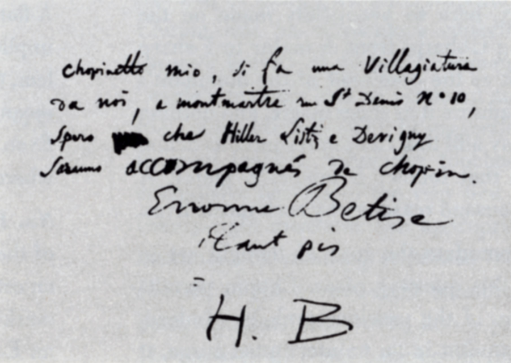 chopinetto mio, si fa una Villagiatura
da noi, a montmartre rue St Denis n° 10,
spero che Hiller Listz e Devigny
saranno accompagnés de chopin.
Enorme Betise
tant pis
H. B